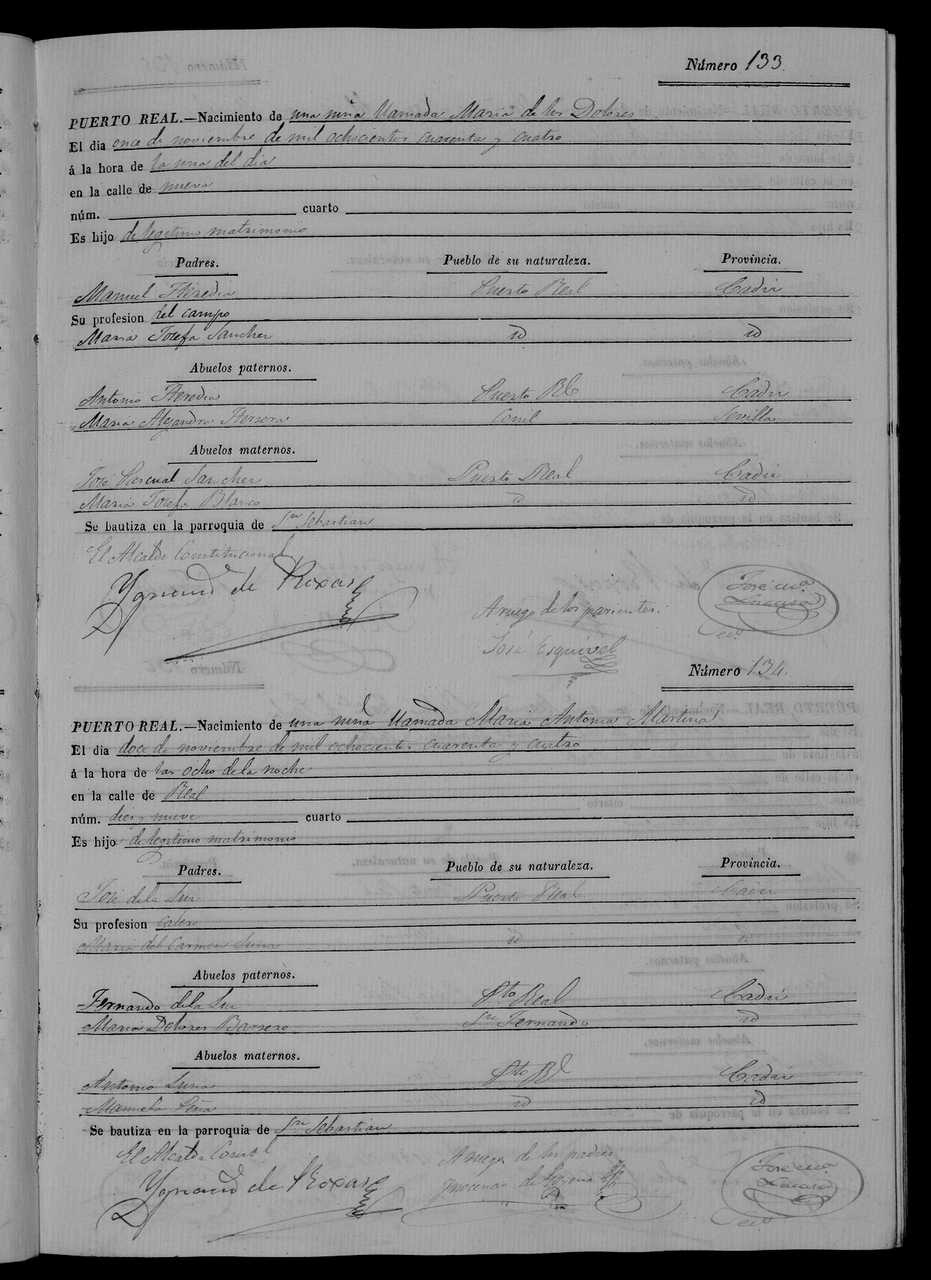 Número 133
PUERTO REAL.—Nacimiento de una niña llamada Maria de los Dolores
El dia once de noviembre de mil ochocientos cuarenta y cuatro
á la hora de la una del dia
en la calle de nueva
núm. cuarto
Es hijo de legitimo matrimonio
Padres. Pueblo de su naturaleza. Provincia.
Manuel Heredia Puerto Real Cadiz
Su profesion del campo
Maria Josefa Sanchez id id
Abuelos paternos.
Antonio Heredia Puerto Rl Cadiz
Maria Alejandra Herrera Conil Sevilla
Abuelos maternos.
José Pascual Sanchez Puerto Real Cadiz
Maria Josefa Blanco id id
Se bautiza en la parroquia de Sn Sebastian
El Alcalde Constitucional
Ygnacio de Roxas
A ruego de los parientes.
José Esquivel
José ma
Número 134.
PUERTO REAL.—Nacimiento de una niña llamada Maria Antonia Martina
El dia doce de noviembre de mil ochocientos cuarenta y cuatro
á la hora de las ocho de la noche
en la calle de Real
núm. diez y nueve cuarto
Es hijo de legitimo matrimonio
Padres. Pueblo de su naturaleza. Provincia.
José de la Luz Puerto Real Cadiz
Su profesion
Maria del Carmen Luna id id
Abuelos paternos.
Fernando de la Luz Pto Real Cadiz
Maria Dolores Barrero Sn Fernando id
Abuelos maternos.
Antonio Luna Pto Rl Cadiz
Manuela id id
Se bautiza en la parroquia de Sn Sebastian
El Alcalde Const
Ygnacio de Roxas
A ruego de los padres
José ma